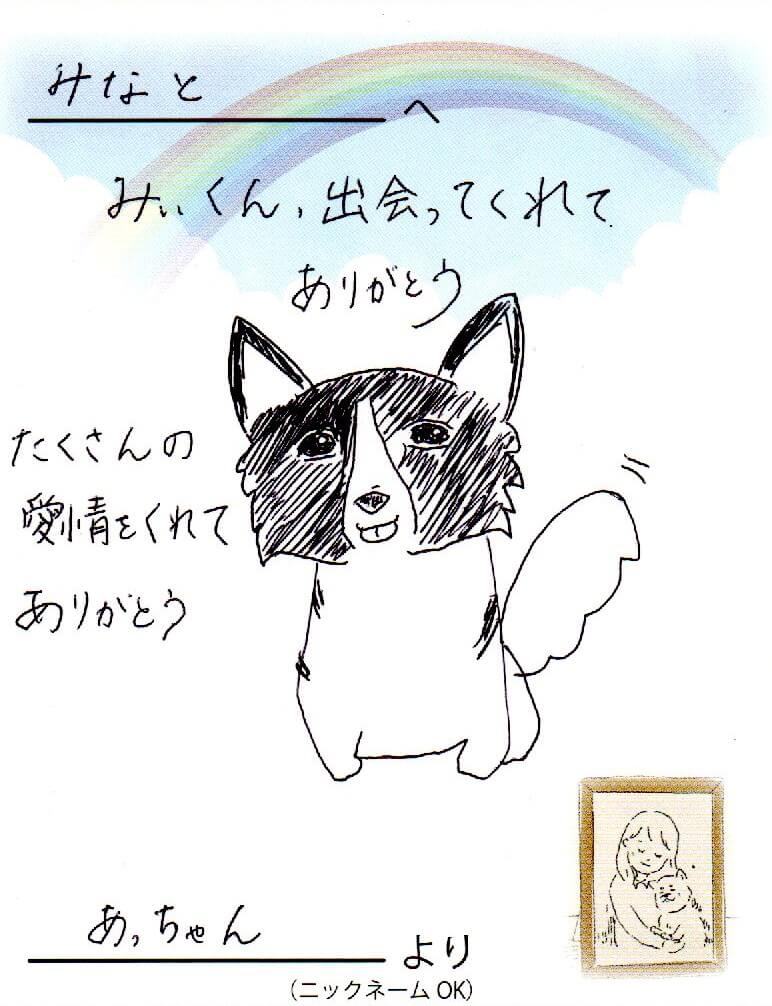 みなと へ
みぃくん、出会ってくれて
ありがとう
たくさんの
愛情をくれて
ありがとう
あっちゃん より
(ニックネームOK)